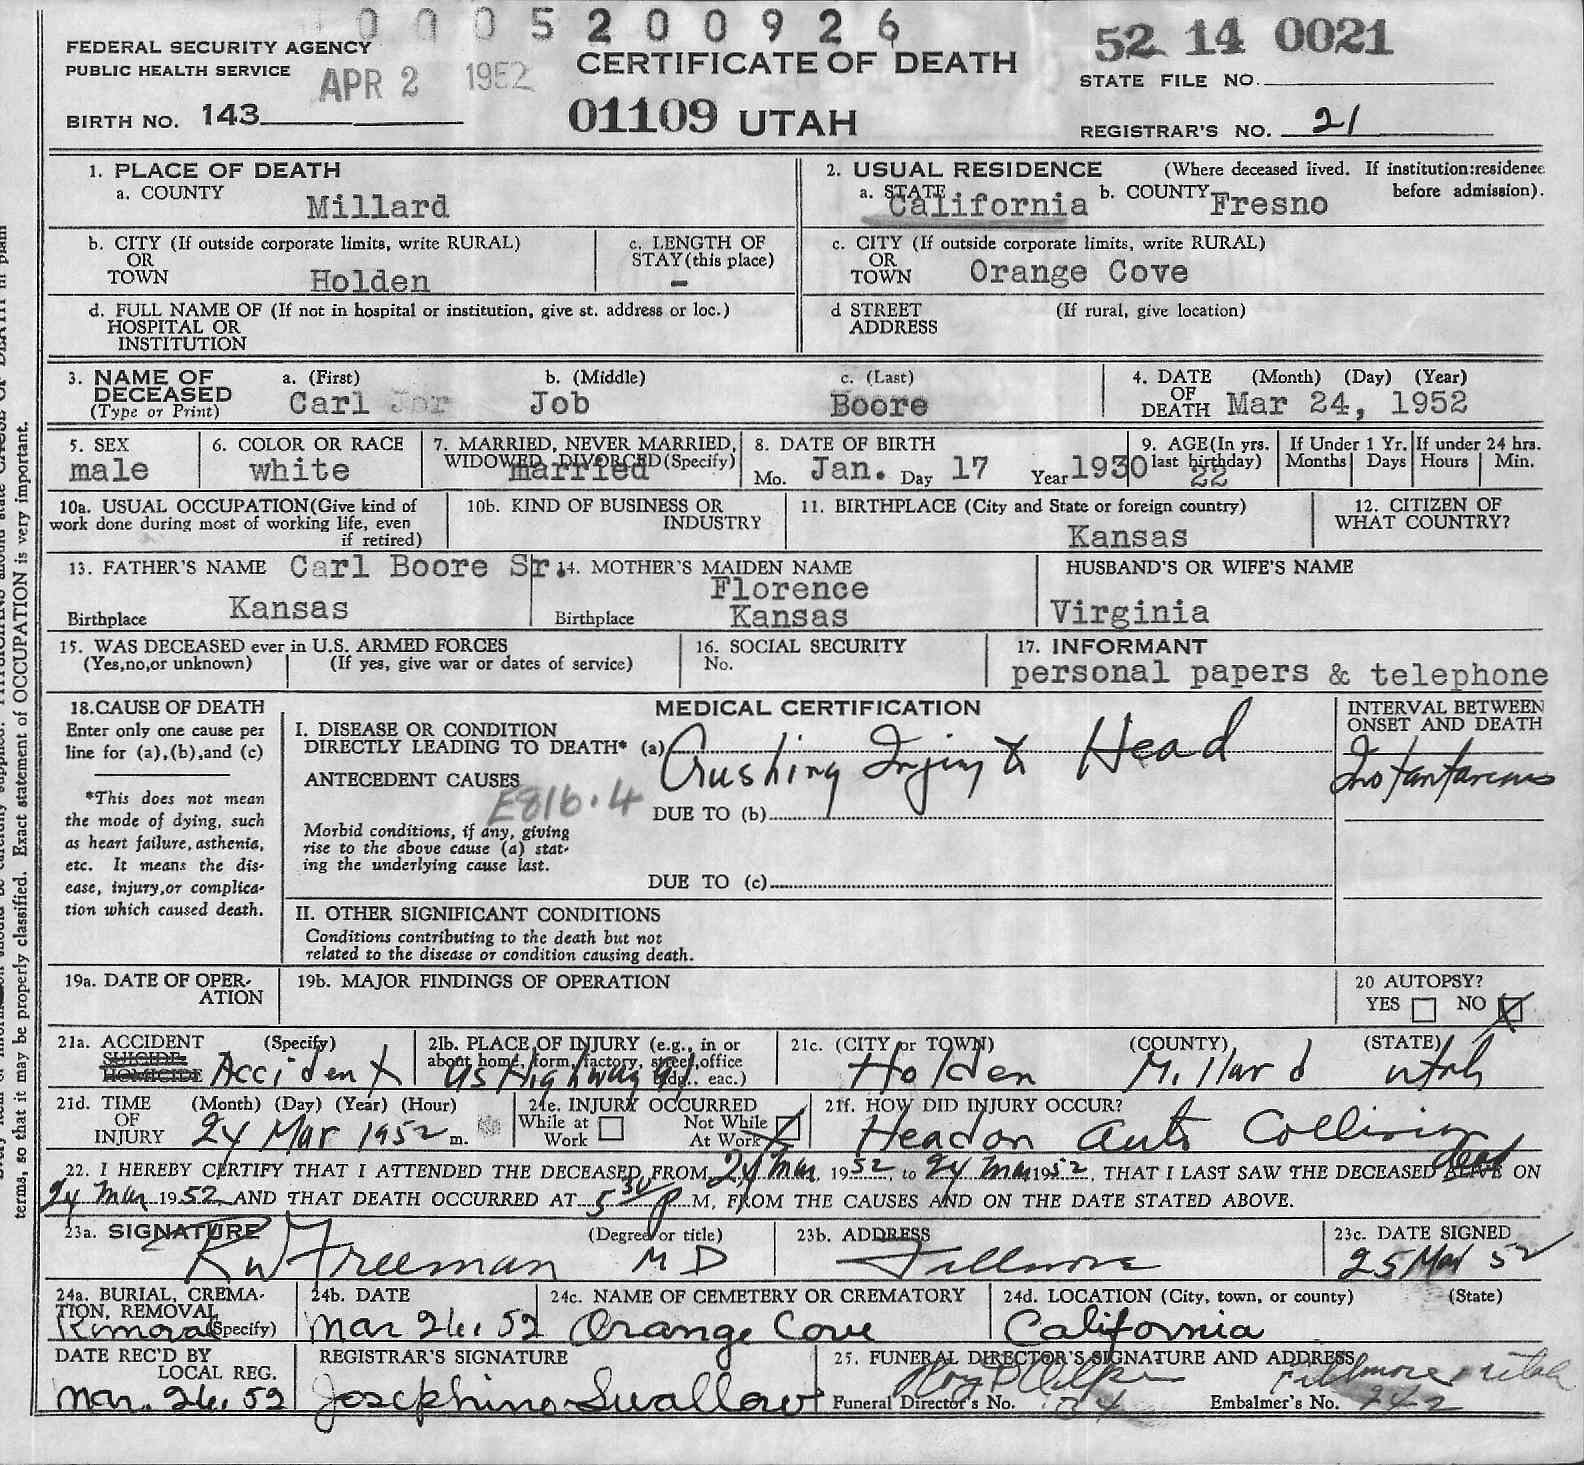 0 0 0 5 2 0 0 9 2 6
FEDERAL SECURITY AGENCY
PUBLIC HEALTH SERVICE
APR 2 1952
CERTIFICATE OF DEATH
52 14 0021
STATE FILE NO.
BIRTH NO. 143
01109 UTAH
REGISTRAR'S NO. 21
1. PLACE OF DEATH
a. COUNTY
Millard
2. USUAL RESIDENCE (Where deceased lived. If institution:residence before admission).
a. STATE California b. COUNTY Fresno
b. CITY (If outside corporate limits, write RURAL)
OR
TOWN Holden
c. LENGTH OF
STAY (this place)
-
c. CITY (If outside corporate limits, write RURAL)
OR
TOWN Orange Cove
d. FULL NAME OF (If not in hospital or institution, give st. address or loc.)
HOSPITAL OR
INSTITUTION
d STREET (If rural, give location)
ADDRESS
3. NAME OF
DECEASED
(Type or Print)
a. (First) b. (Middle) c. (Last)
Carl Job Boore
4. DATE (Month) (Day) (Year)
OF
DEATH Mar 24, 1952
5. SEX
male
6. COLOR OR RACE
white
7. MARRIED, NEVER MARRIED,
WIDOWED, DIVORCED (Specify)
married
8. DATE OF BIRTH
Mo. Jan. Day 17 Year 1930
9. AGE (In yrs.
last birthday)
22
If Under 1 Yr.
Months Days
If under 24 hrs.
Hours Min.
10a. USUAL OCCUPATION (Give kind of
work done during most of working life, even
if retired)
10b. KIND OF BUSINESS OR
INDUSTRY
11. BIRTHPLACE (City and State or foreign country)
Kansas
12. CITIZEN OF
WHAT COUNTRY?
13. FATHER'S NAME Carl Boore Sr.
Birthplace Kansas
14. MOTHER'S MAIDEN NAME
Florence
Birthplace Kansas
HUSBAND'S OR WIFE'S NAME
Virginia
15. WAS DECEASED ever in U.S. ARMED FORCES
(Yes,no,or unknown) (If yes, give war or dates of service)
16. SOCIAL SECURITY
No.
17. INFORMANT
personal papers & telephone
18.CAUSE OF DEATH
Enter only one cause per
line for (a),(b),and (c)
*This does not mean
the mode of dying, such
as heart failure, asthenia,
etc. It means the dis-
ease, injury,or complica-
tion which caused death.
MEDICAL CERTIFICATION
I. DISEASE OR CONDITION
DIRECTLY LEADING TO DEATH* (a) Crushing Injury to Head
ANTECEDENT CAUSES
E816.4
DUE TO (b)
Morbid conditions, if any, giving
rise to the above cause (a) stat-
ing the underlying cause last.
DUE TO (c)
II. OTHER SIGNIFICANT CONDITIONS
Conditions contributing to the death but not
related to the disease or condition causing death.
INTERVAL BETWEEN
ONSET AND DEATH
Instantaneous
19a. DATE OF OPER-
ATION
19b. MAJOR FINDINGS OF OPERATION
20 AUTOPSY?
YES NO
21a. ACCIDENT (Specify)
SUICIDE
HOMICIDE Accident
21b. PLACE OF INJURY (e.g., in or
about home, form, factory, street,office
bldg., eac.)
US Highway 91
21c. (CITY or TOWN) (COUNTY) (STATE)
Holden Millard Utah
21d. TIME (Month) (Day) (Year) (Hour)
OF
INJURY 24 Mar 1952 m.
21e. INJURY OCCURRED
While at
Work
Not While
At Work
21f. HOW DID INJURY OCCUR?
Headon Auto Collision
22. I HEREBY CERTIFY THAT I ATTENDED THE DECEASED FROM 24 Mar, 1952, to 24 Mar 1952, THAT I LAST SAW THE DECEASED ALIVE dead ON
24 Mar 1952 AND THAT DEATH OCCURRED AT 5 30 P M, FROM THE CAUSES AND ON THE DATE STATED ABOVE.
23a. SIGNATURE (Degree or title)
RW Freeman M D
23b. ADDRESS
Fillmore
23c. DATE SIGNED
25 Mar 52
24a. BURIAL, CREMA-
TION, REMOVAL
(Specify)
Removal
24b. DATE
Mar 26, 52
24c. NAME OF CEMETERY OR CREMATORY
Orange Cove
24d. LOCATION (City, town, or county) (State)
California
DATE REC'D BY
LOCAL REG.
Mar. 26. 52
REGISTRAR'S SIGNATURE
Josephine Swallow
25. FUNERAL DIRECTOR'S SIGNATURE AND ADDRESS
Fillmore Utah
Funeral Director's No. Embalmer's No. 242
terms, so that it may be properly classified. Exact statement of OCCUPATION is very important.